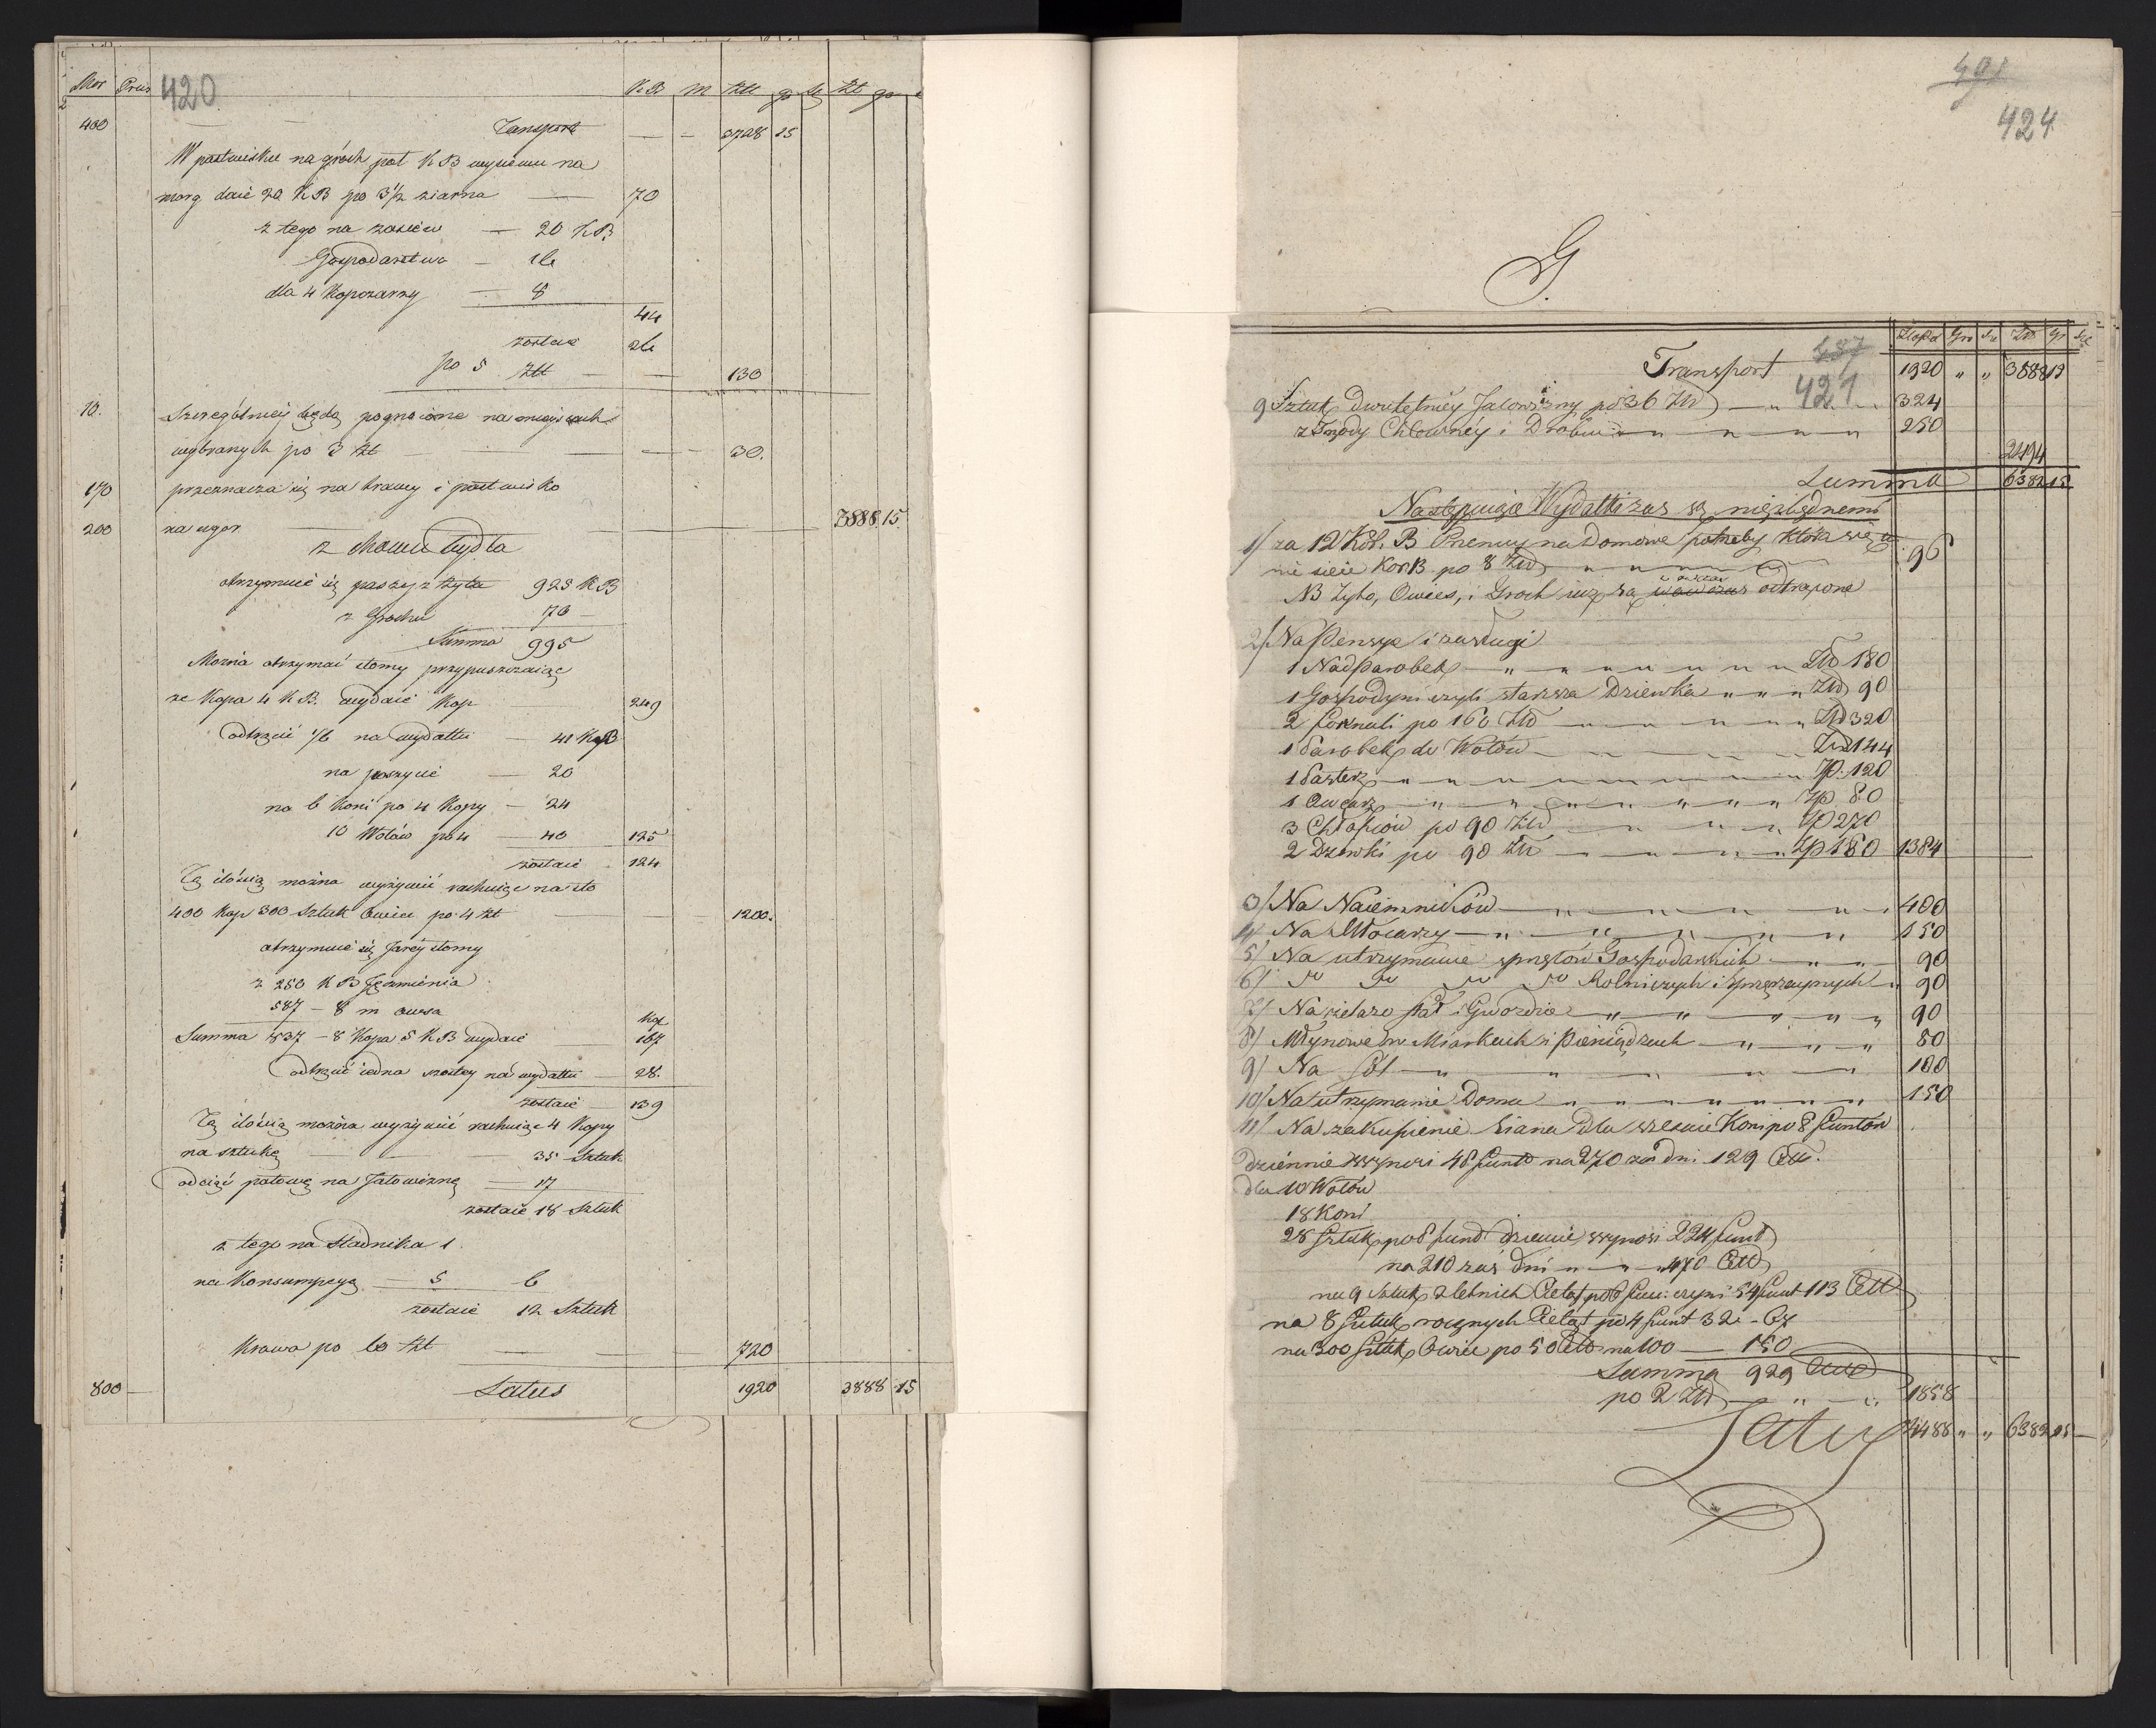 Mor Prus 420 K.B m Ztt gr sz zt gr
400 Transport — — 3728 15
W pastwisku na groch pół K B wysiewu na
morg daie 20 K B po 3 1/2 ziarna — 70
z tego na zasiew — 20 K B.
Gospodarstwo — 16
dla 4 Kopczarzy — 8
44
zostaie 26
po 5 Ztt — — 130
10. Szczególniej będą pognoione na miejscach
wybranych po 3 Zt — — — 30.
170 przeznacza się na trawy i pastwisko
200 na ugor — — 3888 15
z chowu bydła
otrzymuie się paszy z żyta 925 K B
z Grochu 70 —
Summa 995
Można otrzymać słomy przypuszczaiąc
ze Kopa 4 K B. wydaie Kop — 249
odtrącić 1/6 na wydatki — 41 Kop
na poszycie — 20
na 6 koni po 4 Kopy — 24
10 Wołów po 4 — 40 125
zostaie 124
Tą ilością można wyżywić rachuiąc na sto
400 Kop 300 Sztuk Owiec po 4 Zt — — 1200.
otrzymuie się Jarey słomy
z 250 K B Jęczmienia
587 — 8 m owsa Kop
Summa 837 — 8 Kopa 5 K B wydaie 167
odtrącić iedna szostey na wydatki 28.
zostaie 139
Tą ilością można wyżywić rachuiąc 4 Kopy
na sztukę — — 35 Sztuk
odciąć połowę na Jałowiznę — 17
zostaie 18 Sztuk
z tego na Stadnika 1
na Konsumpcyą — 5 6
zostaie 12 Sztuk
Krowa po 60 Zt — — 720
800 — Latus 1920 3888 15
491
424
G.
Złopol Gro Sz Ztt Gr Sz
Transport 487 1920 " " 3888 15
421
9 Sztuk dwuletniey Jałowizny po 36 Ztt — " 324
z Trzody Chlewnéy i Drobiu — " " " " 250
2494
Summa 6382 15
Następuiące Wydatki zas są niezbędnemi
1/ za 12 Kor. B Pszenicy na domowe potrzeby która się
nie sieie Kor B po 8 Ztt — " " " 96
NB Żyto, Owies, i Groch iuż są odtrącone
2/ Na Pensye i zasługi
1 Nadparobek — " " " " " Ztt 180
1 Gospodyni czyli starsza Dziewka " " " Ztt 90
2 Fornali po 160 Ztt — " " " " Ztt 320
1 Parobek do Wołów — " " " Ztt 144
1 Pasterz — " " " " " Zp. 120
1 Owcarz — " " " " " Zp. 80
3 Chłopców po 90 Ztt — " " Zp 270
2 Dziewki po 90 Ztt — " " " Zp 180 1384
3/ Na Naiemników — " " " " 400
4/ Na Młocarzy — " " " " " 150
5/ Na utrzymanie sprzętów Gospodarskich — " " 90
6/ " " " " Rolniczych i Sprzężaynych " 90
7/ Na żelazo stal i Gwoździe " " " " " 90
8/ Młynowe w Miarkach i Pieniądzach — " " " 80
9/ Na Sól — " " " " " 100
10/ Na utrzymanie Domu — " " " " " 150
11/ Na zakupienie Siana dla sześciu Koni po 8 Funtów
dziennie wynosi 48 Funt na 270 zas dni 129 Ctt.
dla 10 Wołów
18 Koni
28 Sztuk po 8 funt dziennie wynosi 224 Funt
na 210 zas dni — " — " 470 Ctt
na 9 sztuk 2 letnich Cieląt po 6 Fun: czyni 54 Funt 113 Ctt
na 8 Sztuk rocznych Cieląt po 4 Funt 32 - 67
na 300 Sztuk Owiec po 50 Ctt na 100 — 150
Summa 929 Cttr
po 2 Ztt — " — " 1858
Latus 4488 " " 6382 15 —